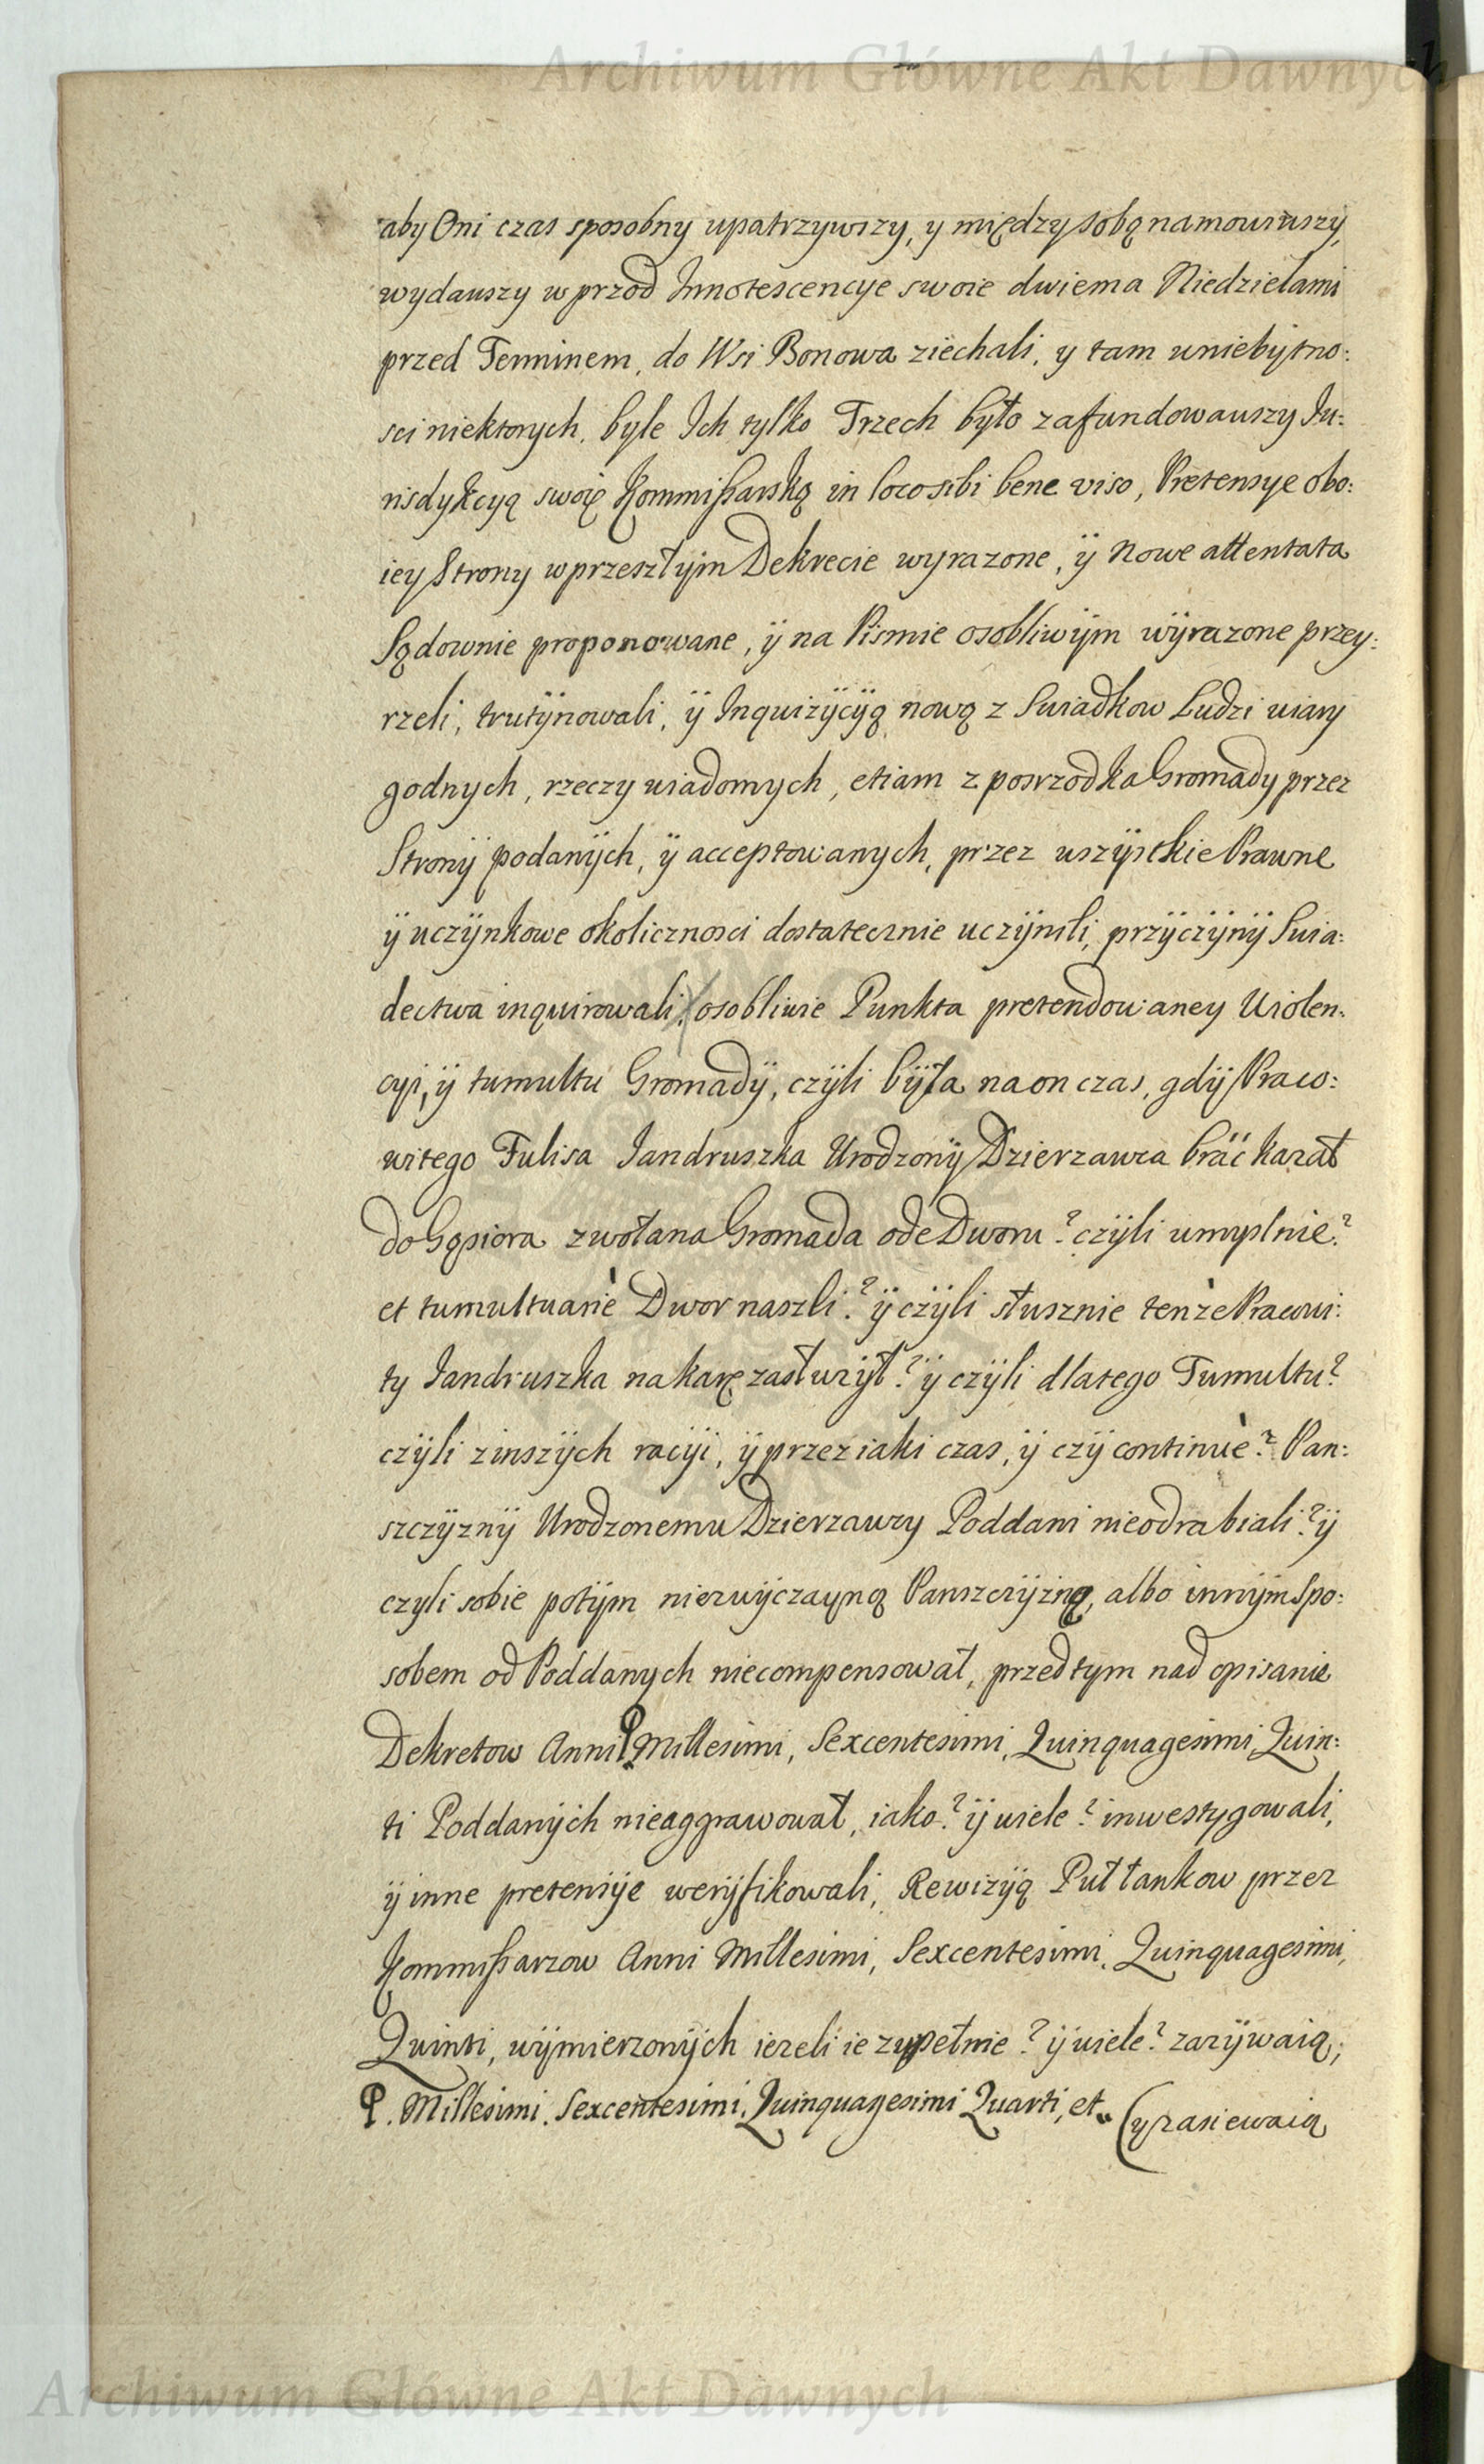 Archiwum Główne Akt Dawnych
aby Oni czas sposobny upatrzywszy, y między sobą namowiwszy,
wydawszy w przod Innotescencye swoie dwiema Niedzielami
przed Terminem, do Wsi Bonowa ziechali, y tam w niebytno:
sci niektorych, byle Ich tylko Trzech było zafundowawszy Ju:
risdykcyą swoię Kommißarską in loco sibi bene viso, Pretensye obo:
iey Strony w przeszłÿm Dekrecie wyrazone, ÿ Nowe attentata
Sądownie proponowane, ÿ na Pismie osobliwÿm wÿrazone przey:
rzeli, trutÿnowali, ÿ Inquizÿcÿą nową z Swiadkow Ludzi wiary
godnych, rzeczy wiadomych, etiam z posrzodka Gromady przez
Stronÿ podanÿch, ÿ acceptowanych, przez wszÿstkie Prawne
ÿ uczÿnkowe okolicznosci dostatecznie uczÿnili, przÿczÿnÿ Swia:
dectwa inquirowali, osobliwie Punkta pretendowaney Wiolen:
cyi, ÿ tumultu Gromadÿ, czÿli bÿła na on czas, gdÿ Praco:
witego Fulisa Jandruszka Urodzonÿ Dzierzawca brać kazał
do Gąsiora zwołana Gromada ode Dworu? czÿli umyslnie?
et tumultuariè Dwor naszli? ÿ czÿli słusznie tenże Pracowi:
ty Jandruszka na karę zasłuzÿł? ÿ czÿli dlatego Tumultu?
czÿli z inszÿch racÿi, ÿ przez iaki czas, ÿ czÿ continuè? Pan:
szczÿznÿ Urodzonemu Dzierzawcy Poddani nieodrabiali? ÿ
czyli sobie potÿm niezwÿczayną Panszczÿzną, albo innÿm spo:
sobem od Poddanych niecompensował, przed tym nad opisanie
Dekretow Anni ꝑ Millesimi, Sexcentesimi, Quinquagesimi Quin:
ti Poddanÿch nieaggrawował, iako? ÿ wiele? inwestygowali,
ÿ inne pretensÿe werÿfikowali, Rewizÿą Puł łankow przez
Kommißarzow Anni Millesimi, Sexcentesimi, Quinquagesimi,
Quinti, wÿmierzonÿch iezeli ie zupełnie? ÿ wiele? zazÿwaią,
ꝑ. Millesimi. Sexcentesimi. Quinquagesimi Quarti, et (y zasiewaią
Archiwum Główne Akt Dawnych